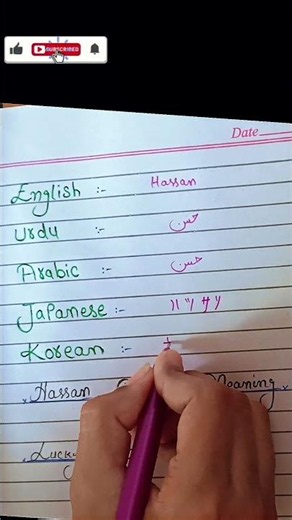 SUBSCRIBED
Date
English :- Hassan
Urdu :- حسن
Arabic :- حسن
Japanese :- ハッサン
Korean :-
Hassan Meaning
Luck